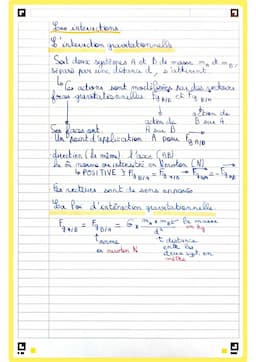 Les interactions.
L'interaction gravitationnelle
Soit deux systèmes A et B de masse mA et mB,
séparé par une distance d, s'attirent.
↳ Ces actions sont modélisées par des vecteurs
forces gravitationnelles Fg A/B et Fg B/A
action de A sur B
action de B sur A
Ces forces ont :
Un point d'application A pour Fg A/B
direction (la même) l'axe (AB)
la norme ou intensité en Newton (N)
↳ POSITIVE Fg B/A = Fg A/B → Fg B/A = - Fg A/B
les vecteurs sont de sens opposés
La loi d'interaction gravitationnelle
Fg A/B = Fg B/A = G × mA × mB / d²
la masse en kg
norme en newton N
distance entre les deux syst. en mètre